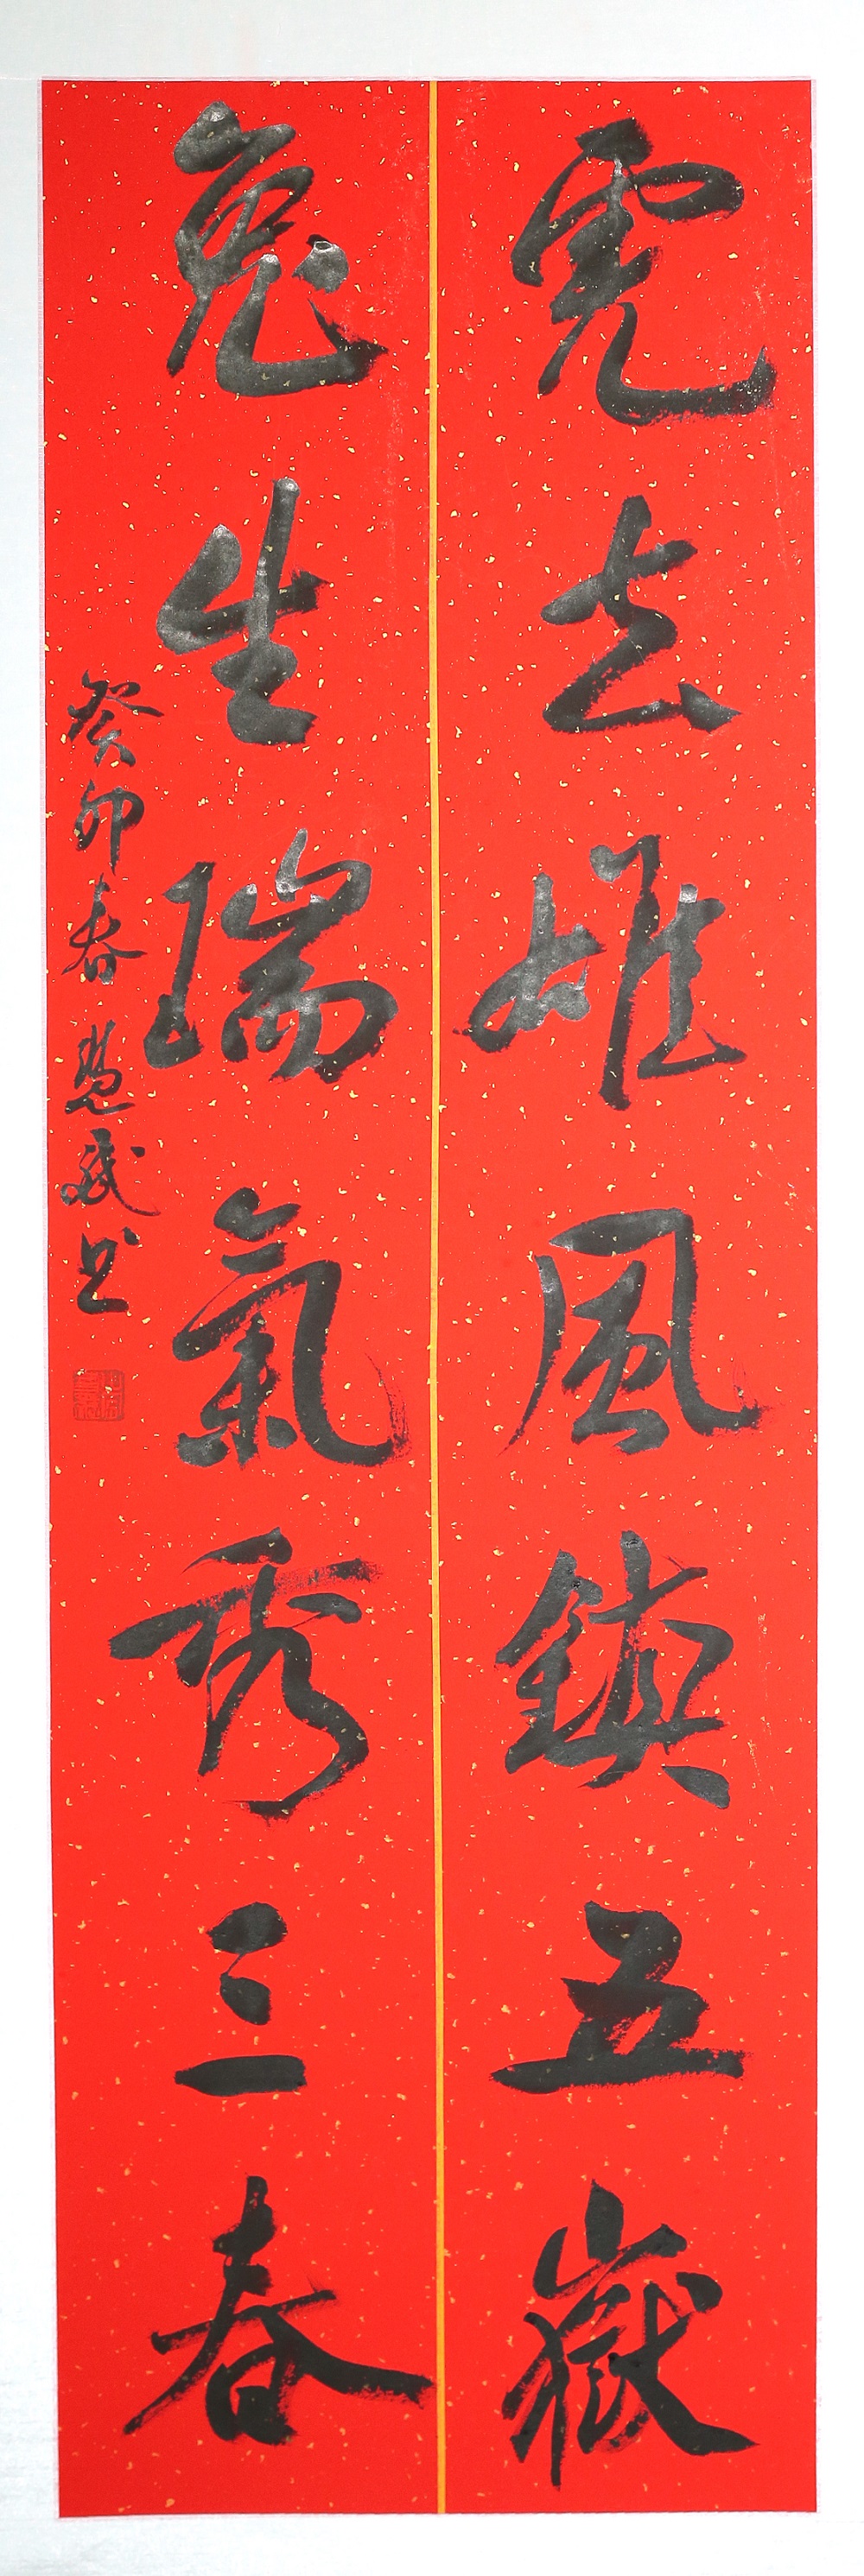 虎去雄風鎮五嶽
兔生瑞氣秀三春
癸卯春 武书